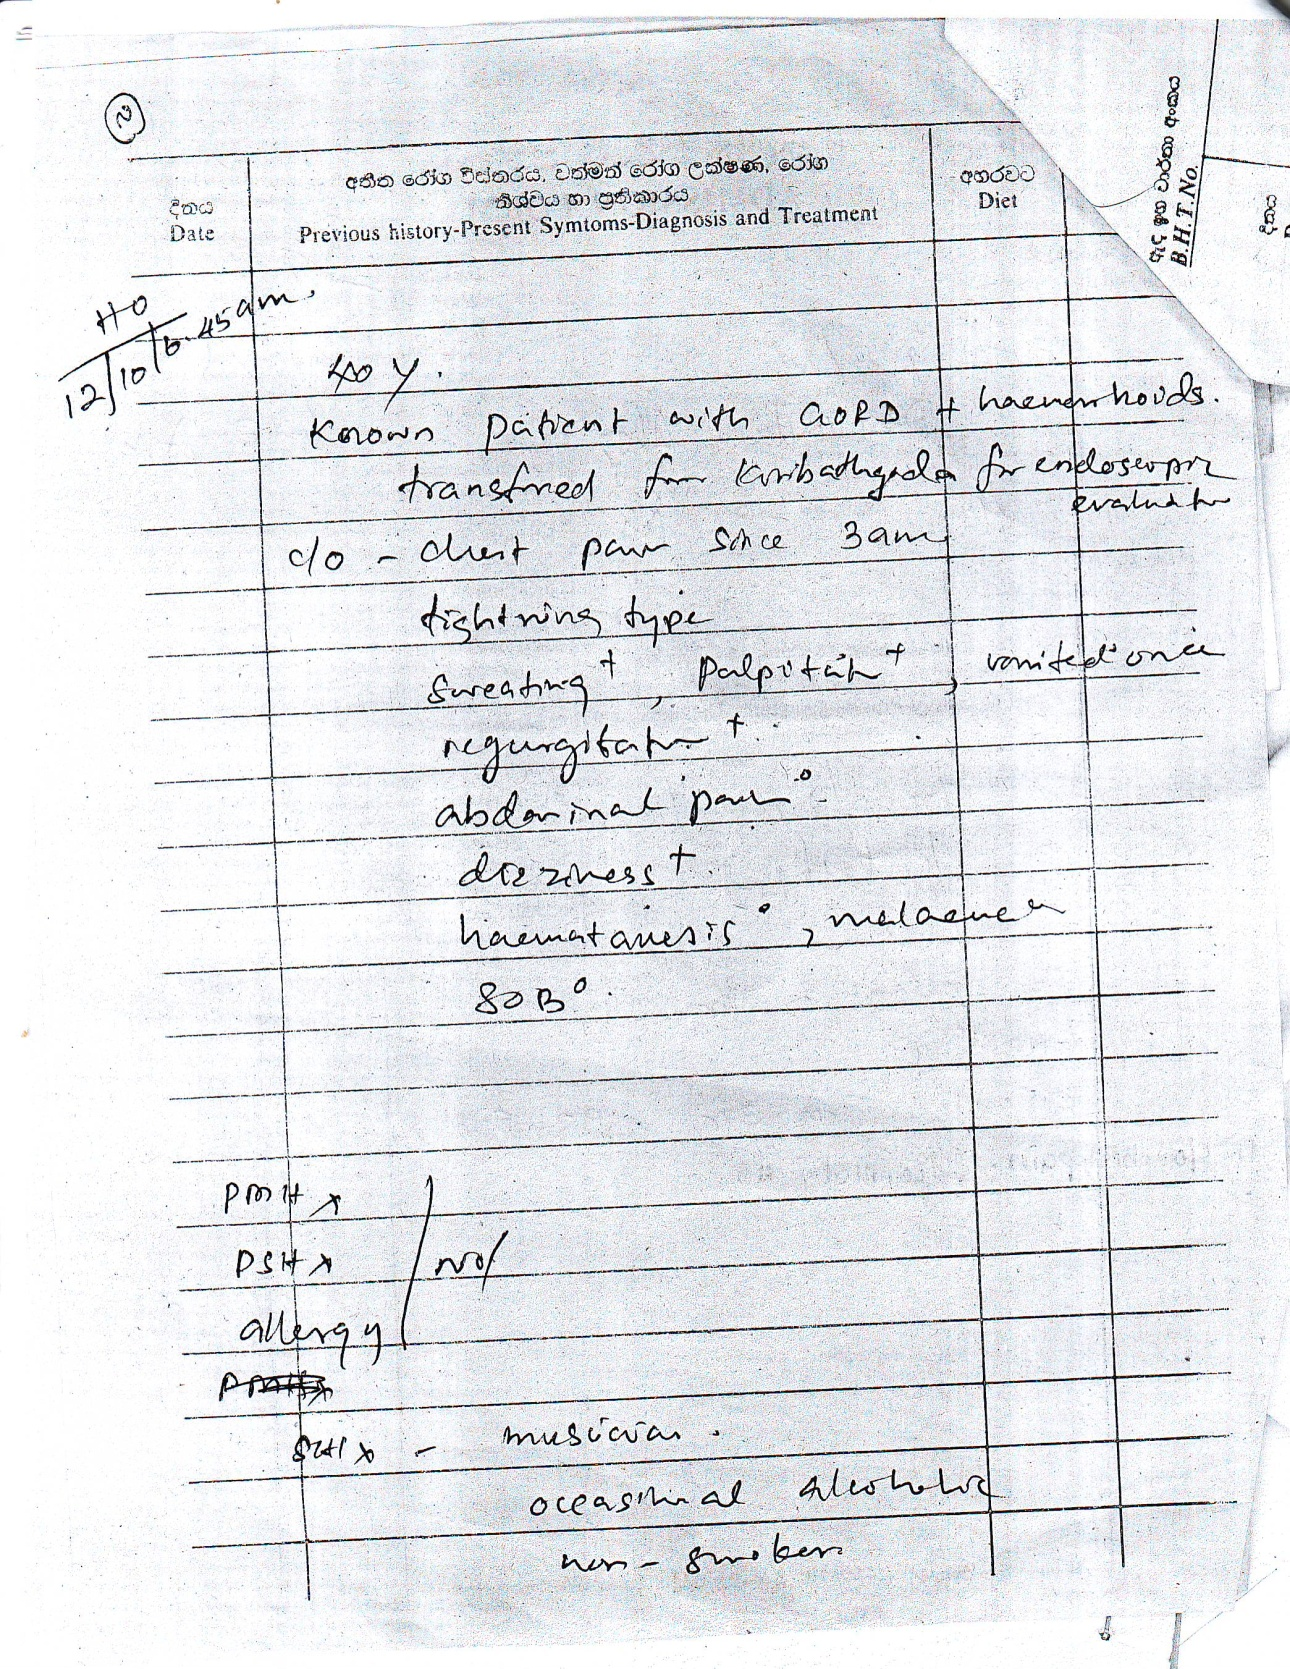 2
අතීත රෝග විස්තරය, වත්මන් රෝග ලක්ෂණ, රෝග
නිශ්චය හා ප්‍රතිකාරය
Previous history-Present Symtoms-Diagnosis and Treatment
දිනය
Date
අහරවට
Diet
ඇඳ ඉහ වාර්තා අංකය
B.H.T.No.
දිනය
HO
12/10/6.45am.
40 y.
Known patient with GORD + haemorrhoids.
transfred from Kiribathgoda for endoscopic
evaluation
c/o - chest pain since 3am
tightning type
sweating +, palpitation +, vomited once
regurgitation +.
abdominal pain °
dizziness +.
haematamesis °, malaena
SOB°.
PMHx
PSHx
allergy
Nol
PMHx
SHx - musician.
occasional alcoholic
non-smoker